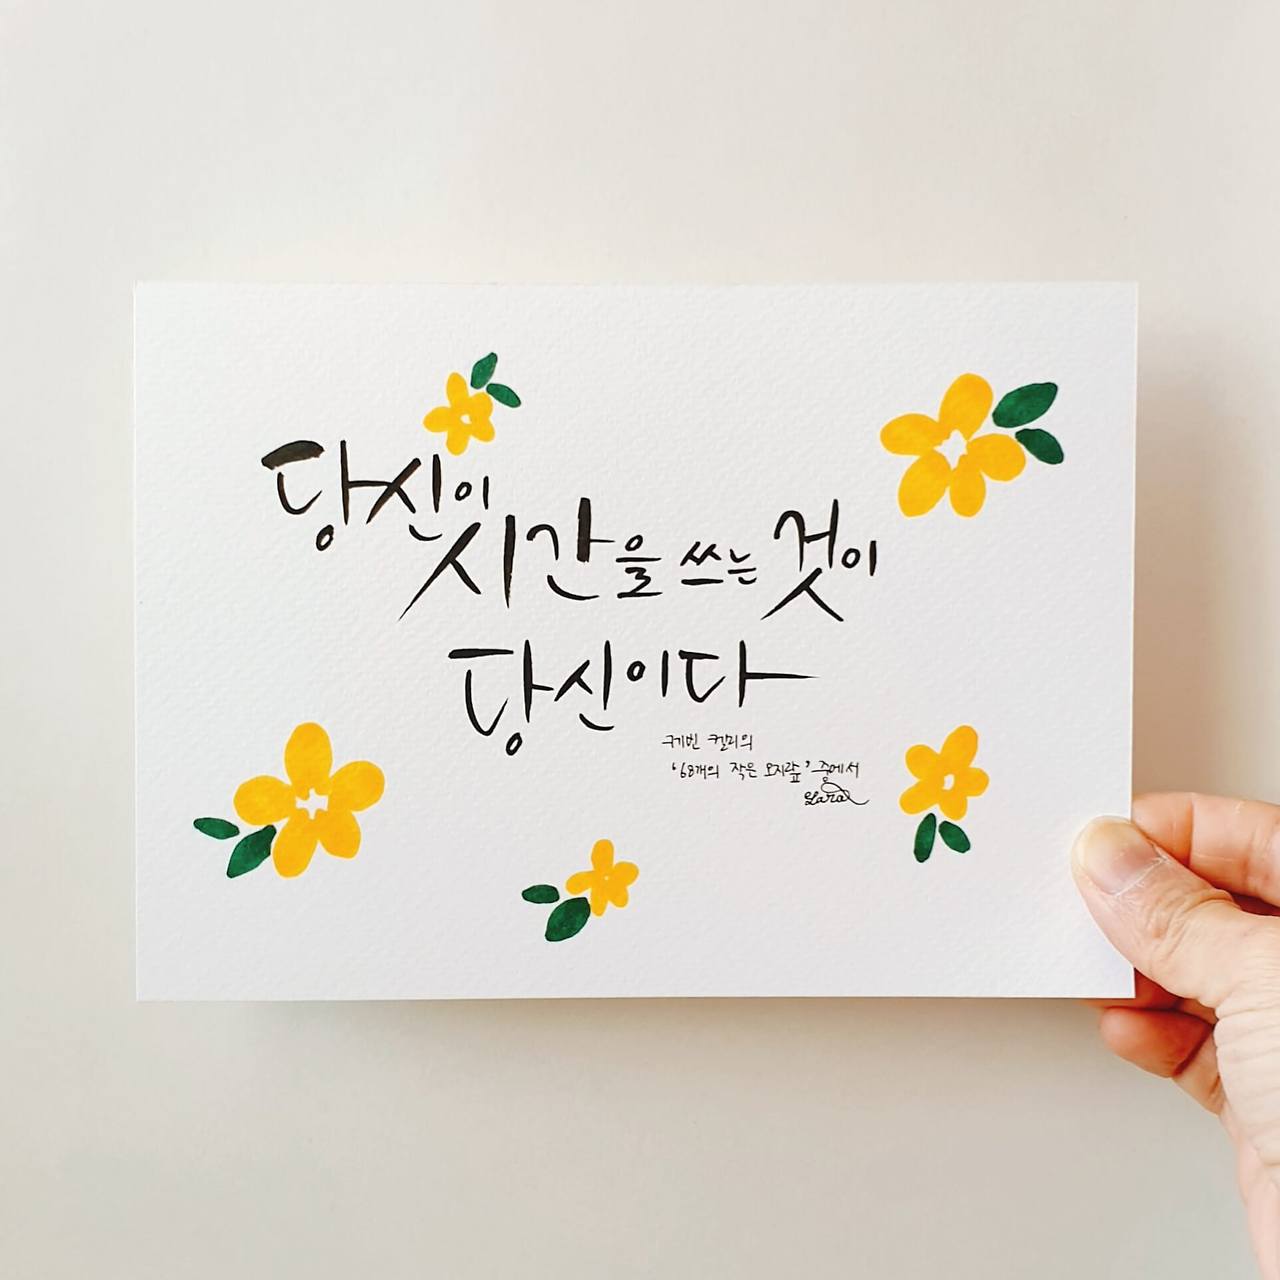 당신이
시간을 쓰는 것이
당신이다
케빈 켈리의
'68개의 작은 오지랖' 중에서
Lara